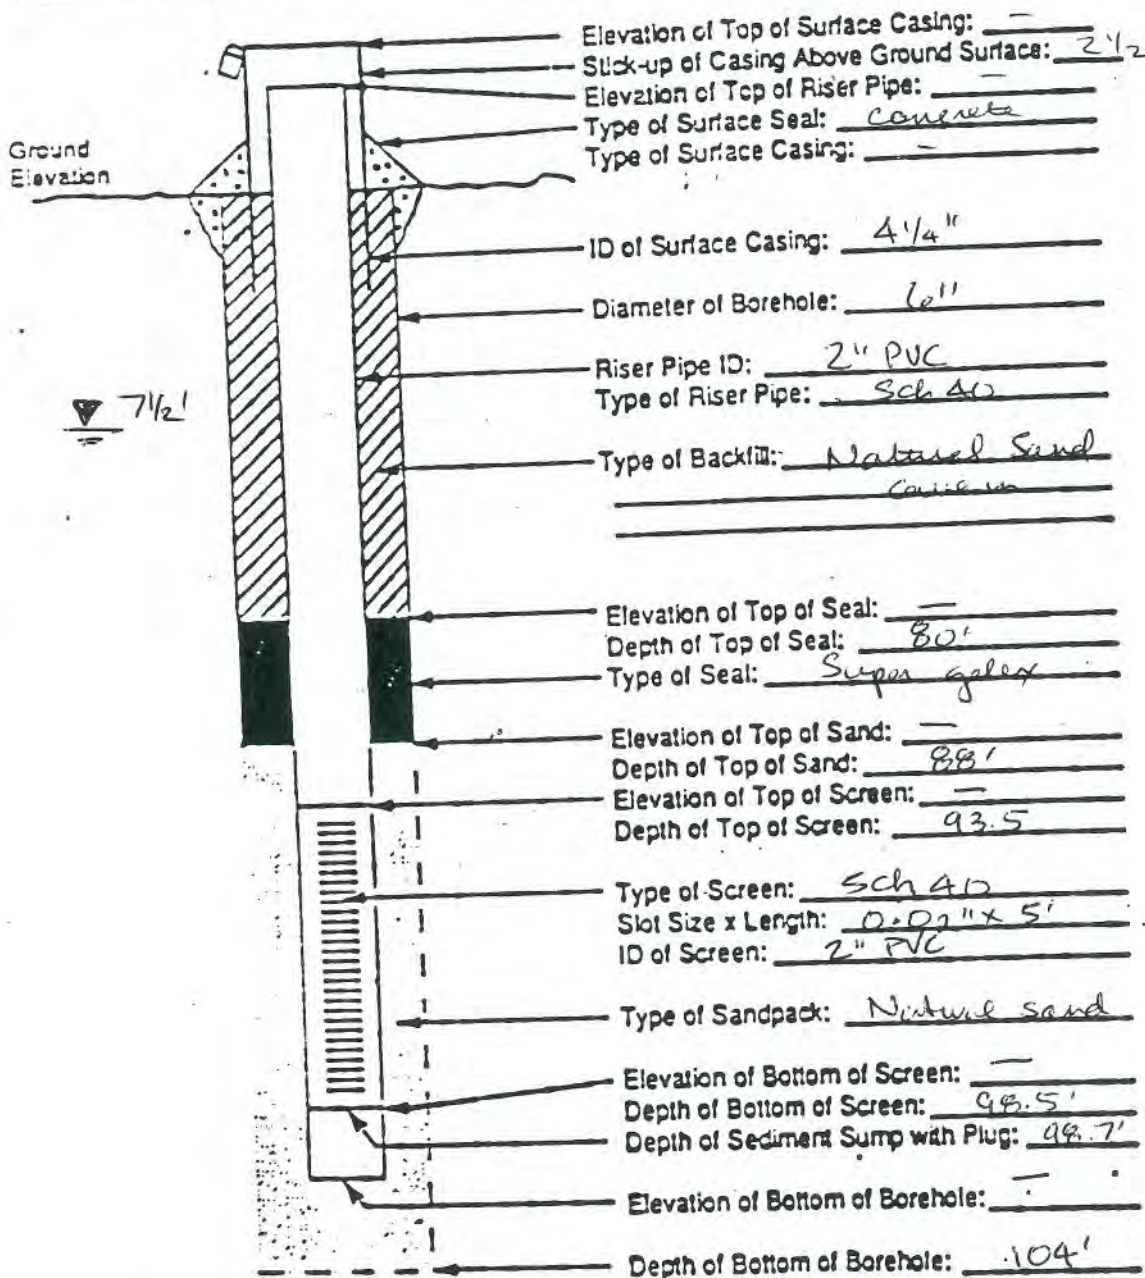 Elevation of Top of Surface Casing: —
Stick-up of Casing Above Ground Surface: 2 1/2
Elevation of Top of Riser Pipe: —
Type of Surface Seal: Concrete
Type of Surface Casing: —
Ground
Elevation
ID of Surface Casing: 4 1/4"
Diameter of Borehole: 6"
Riser Pipe ID: 2" PVC
Type of Riser Pipe: Sch 40
7 1/2'
Type of Backfill: Natural Sand
Elevation of Top of Seal: —
Depth of Top of Seal: 80'
Type of Seal: Super
Elevation of Top of Sand: —
Depth of Top of Sand: 88'
Elevation of Top of Screen: —
Depth of Top of Screen: 93.5
Type of Screen: Sch 40
Slot Size x Length: 0.02" x 5'
ID of Screen: 2" PVC
Type of Sandpack: Natural sand
Elevation of Bottom of Screen: —
Depth of Bottom of Screen: 98.5'
Depth of Sediment Sump with Plug: 98.7'
Elevation of Bottom of Borehole: —
Depth of Bottom of Borehole: 104'